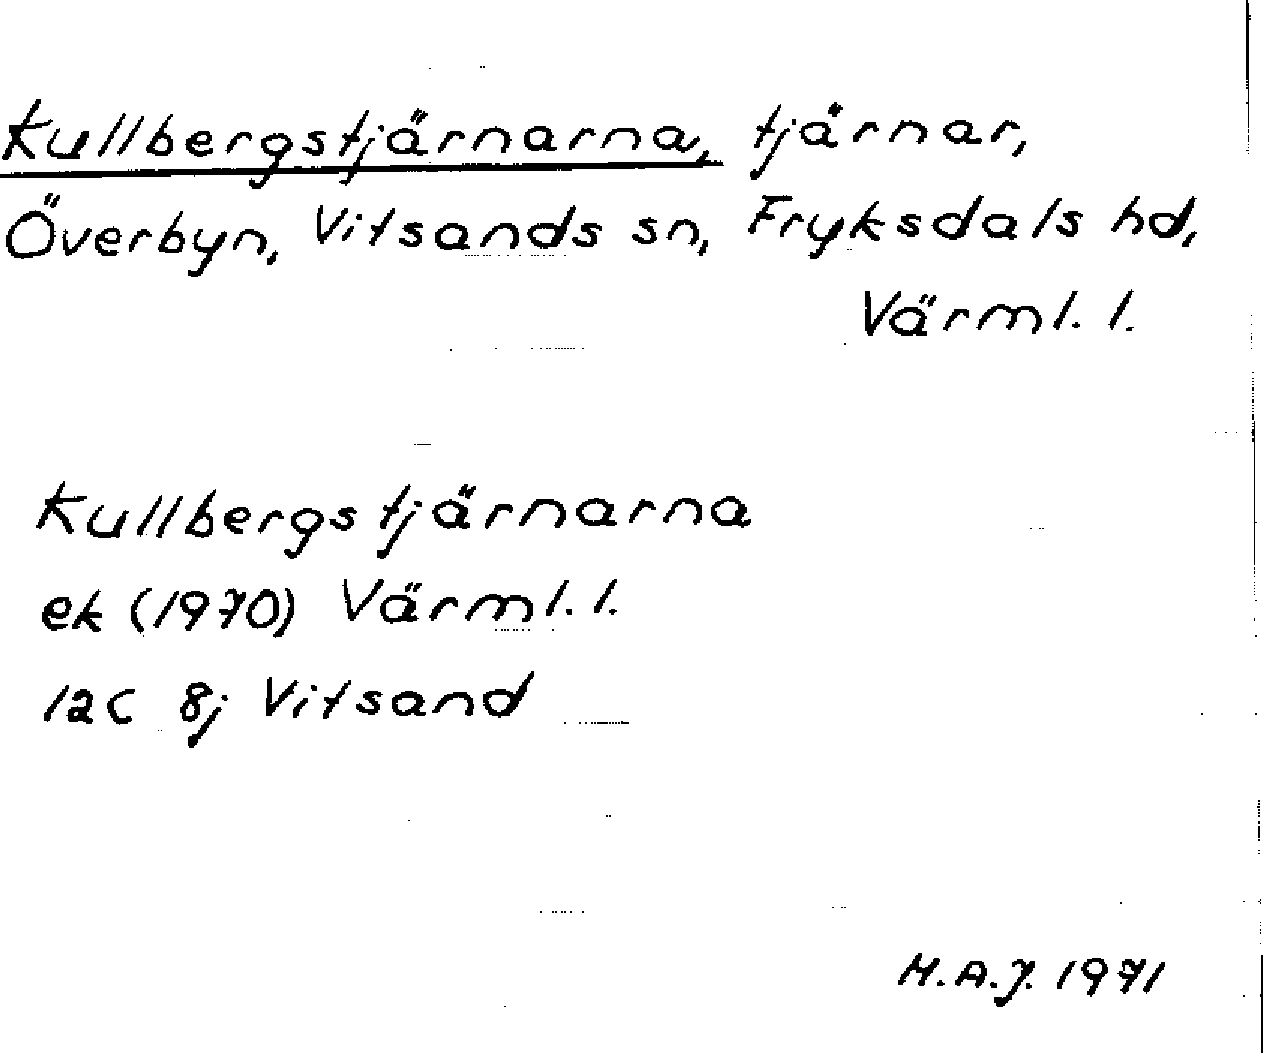 Kullbergstjärnarna, tjärnar,
Överbyn, Vitsands sn, Fryksdals hd,
Värml. l.
Kullbergstjärnarna
ek (1970) Värml. l.
12C 8j Vitsand
H.A.J. 1971